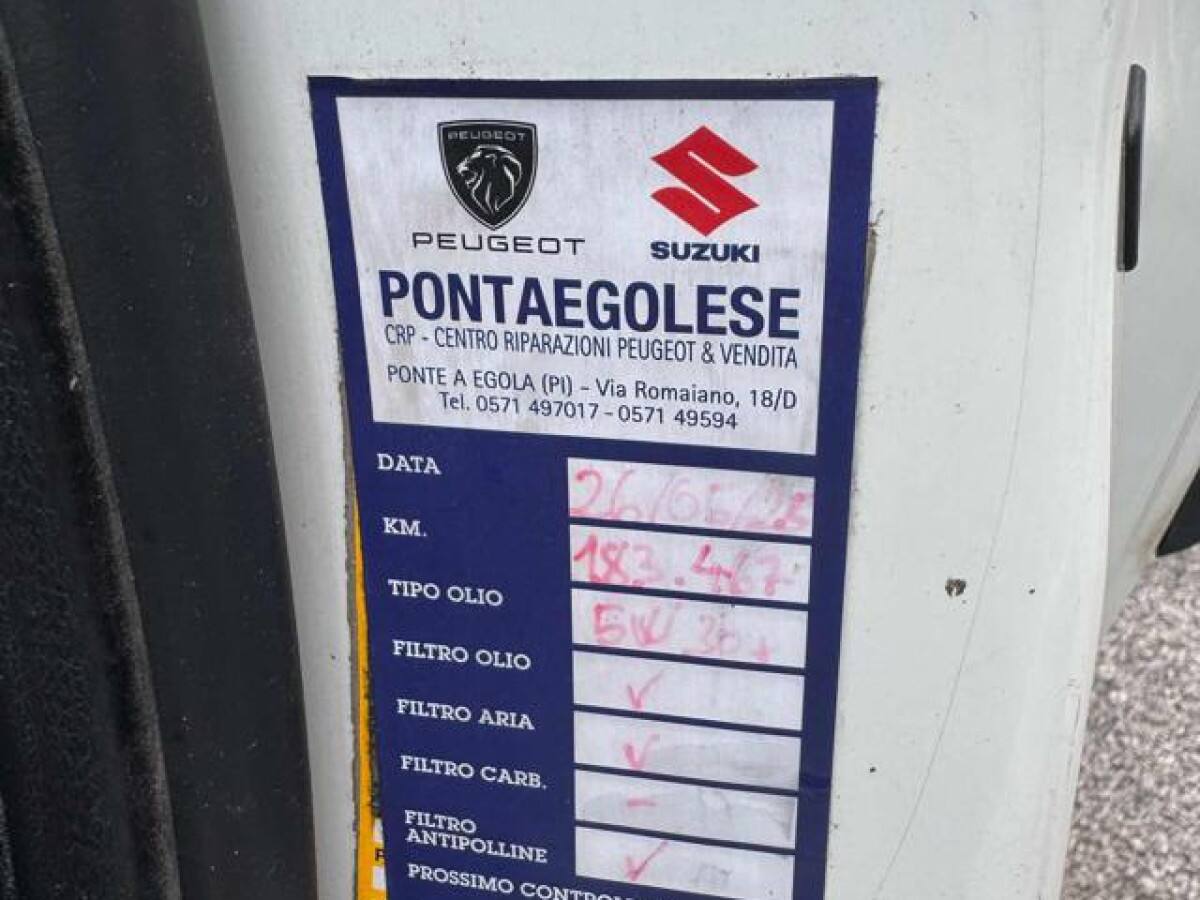 PEUGEOT
PEUGEOT
SUZUKI
PONTAEGOLESE
CRP - CENTRO RIPARAZIONI PEUGEOT & VENDITA
PONTE A EGOLA (PI) - Via Romaiano, 18/D
Tel. 0571 497017 - 0571 49594
DATA
KM. 183.467
TIPO OLIO 5W 30
FILTRO OLIO ✓
FILTRO ARIA ✓
FILTRO CARB. -
FILTRO
ANTIPOLLINE ✓
PROSSIMO